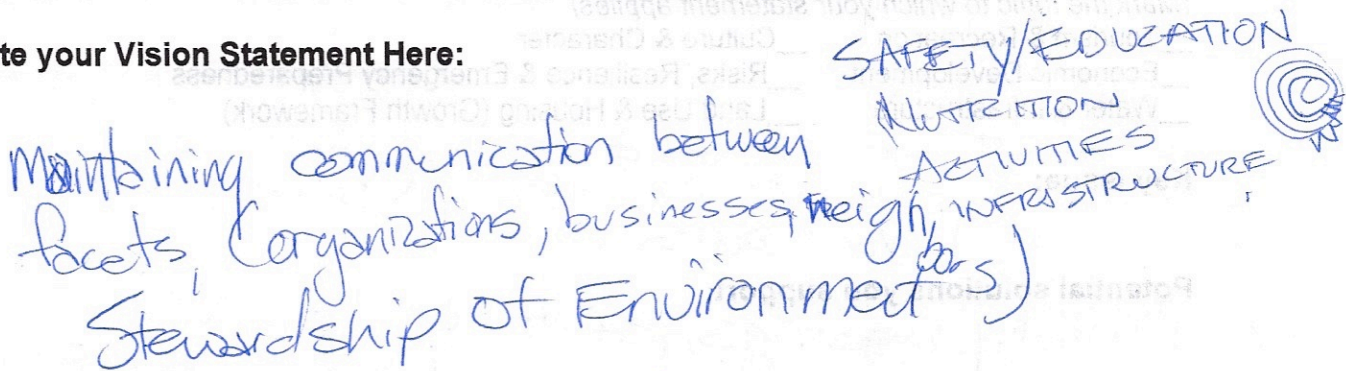 te your Vision Statement Here:
SAFETY/EDUCATION
NUTRITION
ACTIVITIES
Maintaining communication between
facets, (organizations, businesses, neighbors)
INFRISTRUCTURE
Stewardship of Environment